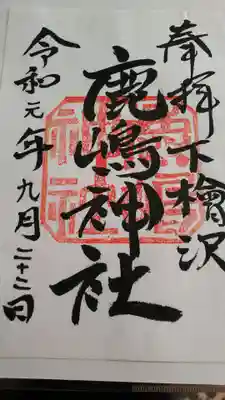 奉拝 下檜沢
鹿嶋神社
令和元年九月二十二日